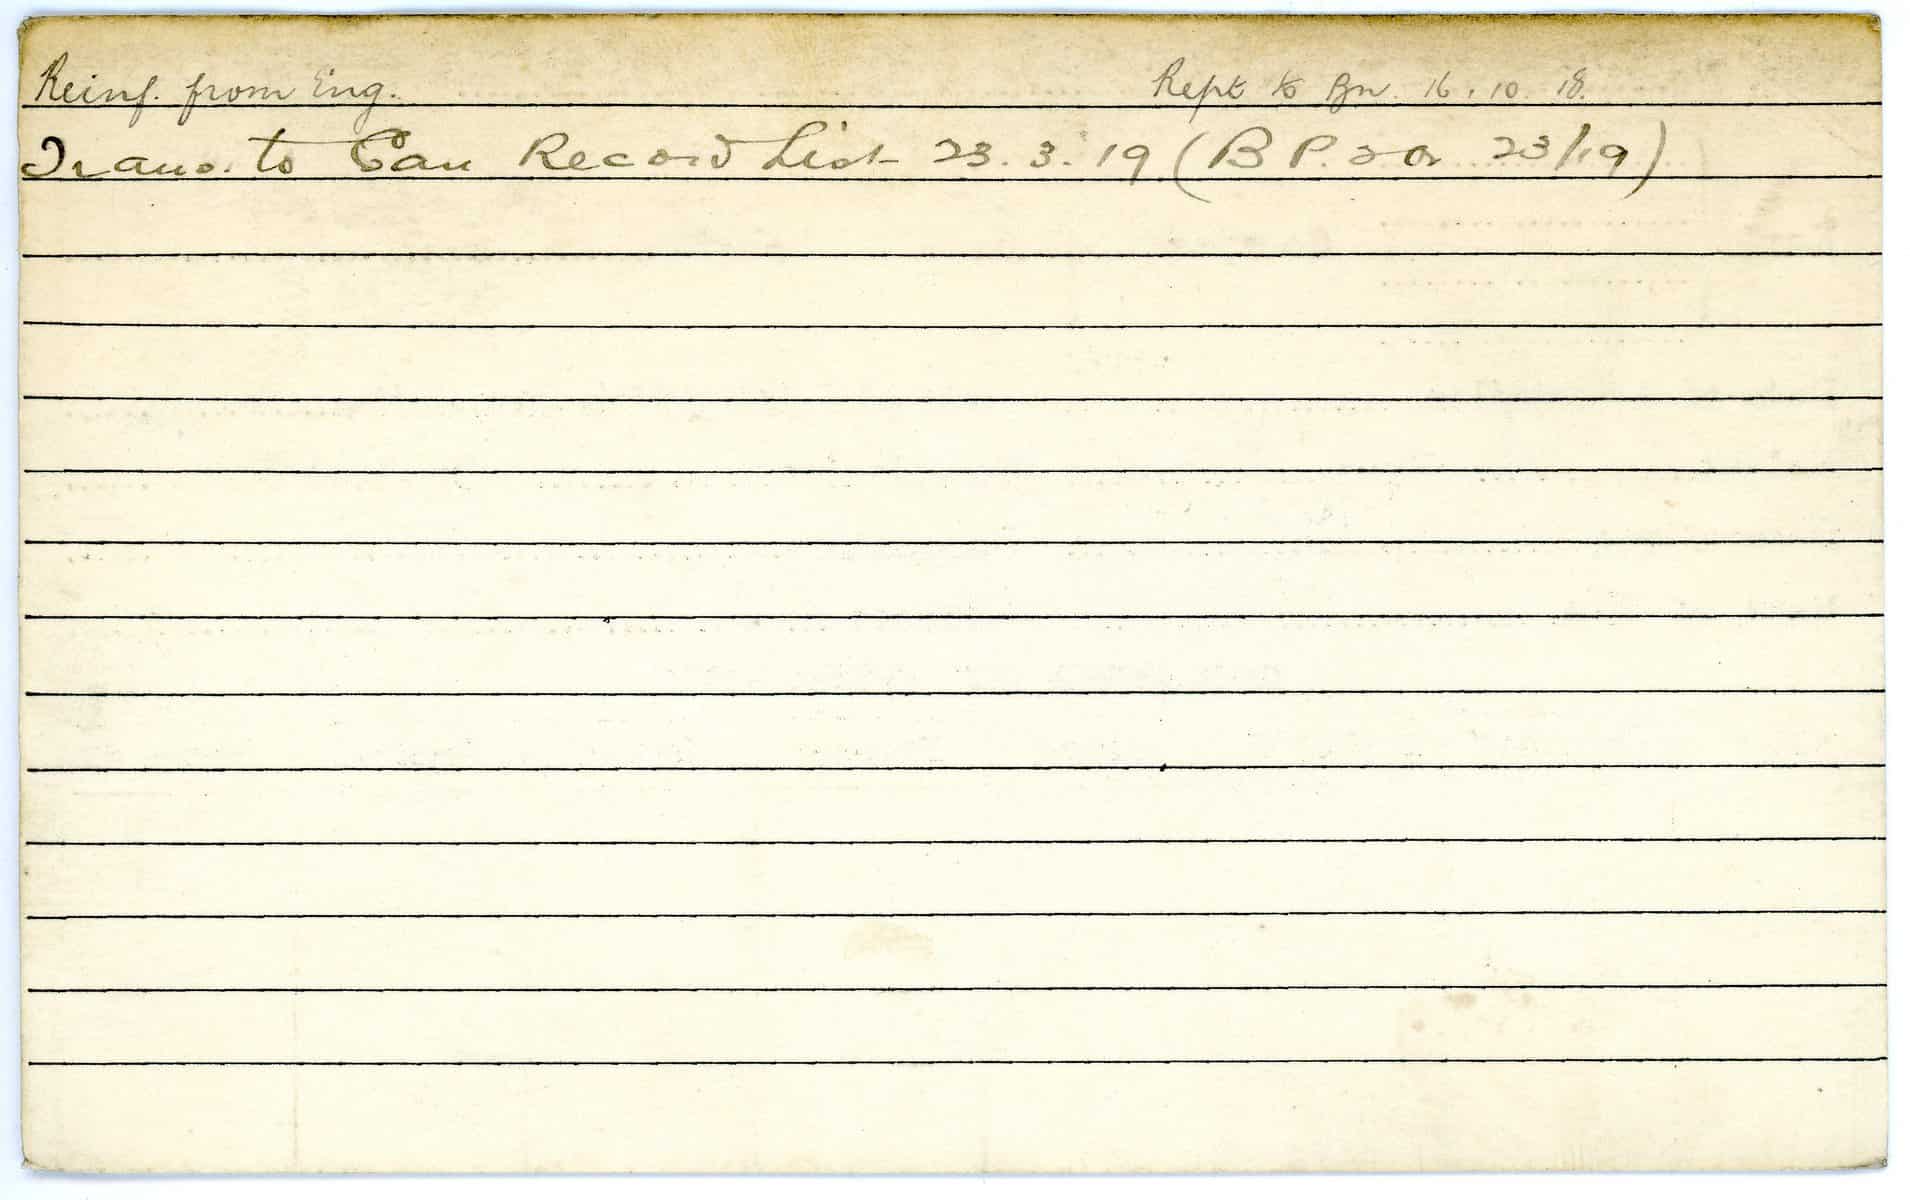 Reinf. from Eng. Rept to Bn. 16.10.18.
Trans. to Can Record List 23.3.19 (B P. 2 Or 23/19)